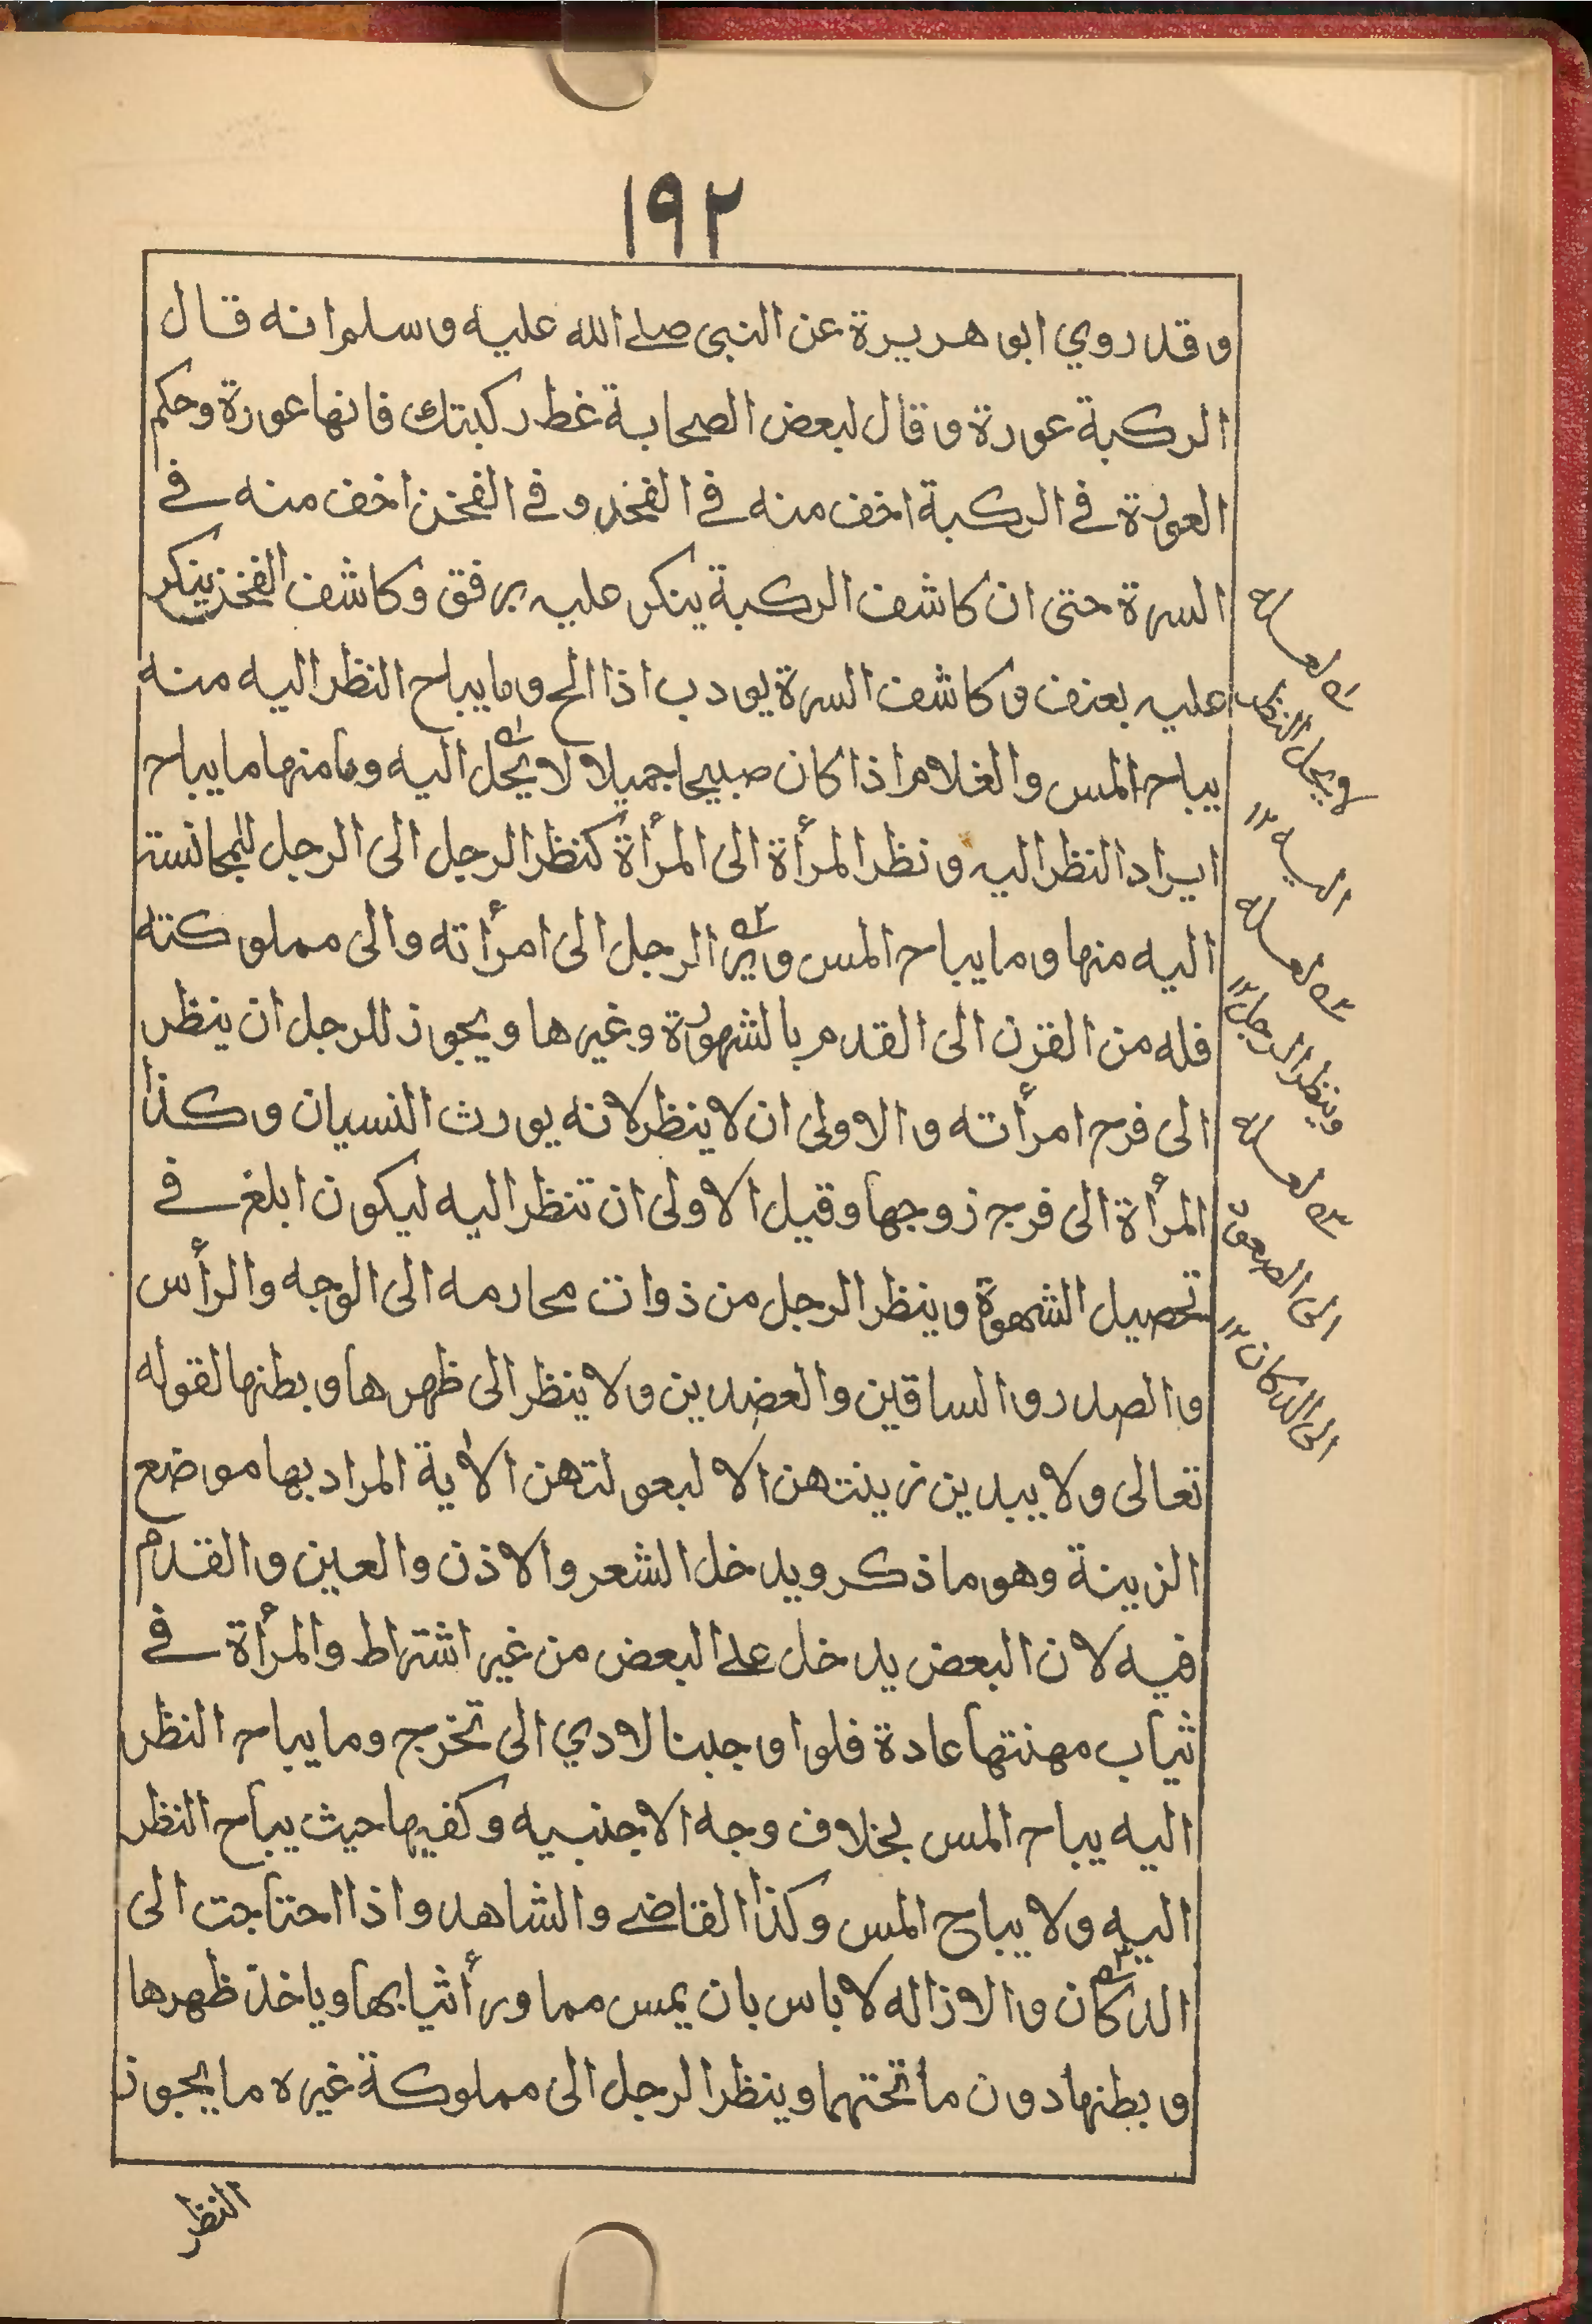 ١٩٢
وقد روي ابو هريرة عن النبي صلے الله عليه وسلم انه قال
الركبة عورة وقال لبعض الصحابة غط ركبتك فانها عورة وحكم
العورة في الركبة اخف منه في الفخذ وفي الفخذ اخف منه في
السرة حتى ان كاشف الركبة ينكر عليه برفق وكاشف الفخذ ينكر
عليه بعنف وكاشف السرة يودب اذا الح وما يباح النظر اليه منه
يباح المس والغلام اذا كان صبيحا جميلا لا يحل اليه وما منها ما يباح
ايراد النظر اليه ونظر المرأة الى المرأة كنظر الرجل الى الرجل للمجانسة
اليه منها وما يباح المس وير الرجل الى امرأته والى مملوكته
فله من القرن الى القدم بالشهوة وغيرها ويجوز للرجل ان ينظر
الى فرج امرأته والاولى ان لا ينظر لانه يورث النسيان وكذا
المرأة الى فرج زوجها وقيل الاولى ان تنظر اليه ليكون ابلغ في
تحصيل الشهوة وينظر الرجل من ذوات محارمه الى الوجه والرأس
والصدر والساقين والعضدين ولا ينظر الى ظهرها وبطنها لقوله
تعالى ولا يبدين زينتهن الا لبعولتهن الاية المراد بها موضع
الزينة وهو ما ذكر ويدخل الشعر والاذن والعين والقدم
فيه لان البعض يدخل علے البعض من غير اشتراط والمرأة في
ثياب مهنتها عادة فلو اوجبنا لادي الى تخرج وما يباح النظر
اليه يباح المس بخلاف وجه الاجنبيه وكفيها حيث يباح النظر
اليه ولا يباح المس وكذا القاضے والشاهد واذا احتاجت الى
الدكان والازاله لا باس بان يمس مما ورأ ثيابها وياخذ ظهرها
وبطنها دون ما تحتهما وينظر الرجل الى مملوكة غيره ما يجوز
ويحل النظر
اليه ١٢
وينظر الرجل ١٢
الى
الى الدكان ١٢
النظر